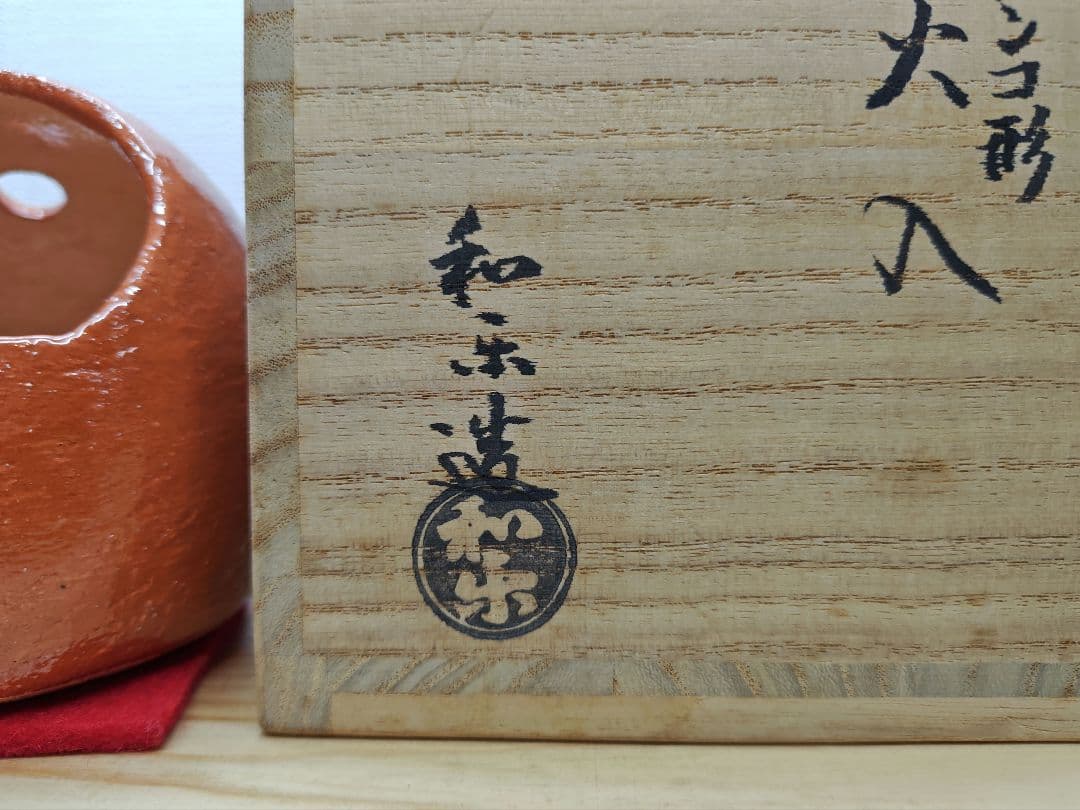 ンコ形
火入
和楽造
和楽